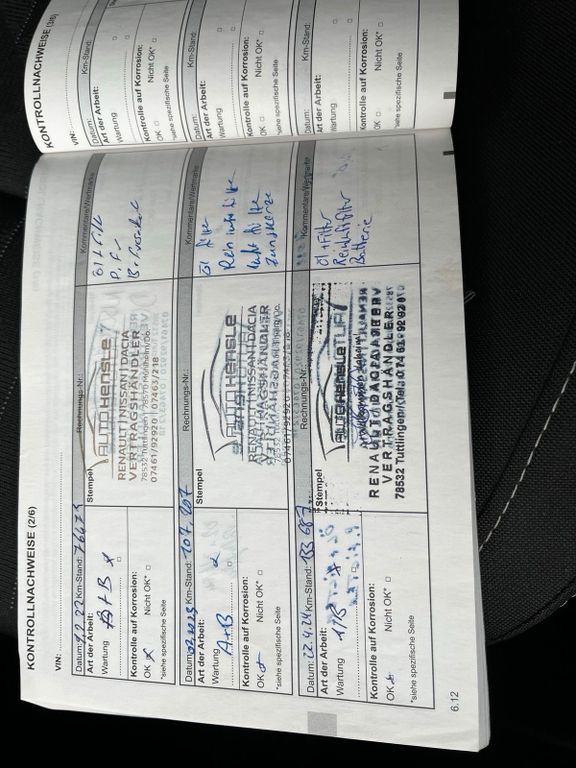 KONTROLLNACHWEISE (2/6)
VIN:
Datum: 9.2.22 Km-Stand: 76479
Rechnungs-Nr.:
Kommentare/Wertmarke
Art der Arbeit:
Wartung A+B
Stempel
AUTO HENSLE
RENAULT | NISSAN | DACIA
VERTRAGSHÄNDLER
78532 Tuttlingen
07461/92920
Öl + Filter
P.F.
Kontrolle auf Korrosion:
OK x Nicht OK*
*siehe spezifische Seite
Datum: 02.2023 Km-Stand: 107.207
Rechnungs-Nr.:
Kommentare/Wertmarke
Art der Arbeit:
Wartung A+B
Stempel
AUTO HENSLE
RENAULT | NISSAN | DACIA
VERTRAGSHÄNDLER
Öl Filter
Reinluftfilter
Luftfilter
Zündkerze
Kontrolle auf Korrosion:
OK Nicht OK*
*siehe spezifische Seite
Datum: 22.4.24 Km-Stand: 133687
Rechnungs-Nr.:
Kommentare/Wertmarke
Art der Arbeit:
Wartung
Stempel
AUTO HENSLE
VERTRAGSHÄNDLER
78532 Tuttlingen
Öl + Filter
Reinluftfilter
Batterie
Kontrolle auf Korrosion:
OK Nicht OK*
*siehe spezifische Seite
6.12
KONTROLLNACHWEISE (3/6)
VIN:
Datum: Km-Stand:
Art der Arbeit:
Wartung
Kontrolle auf Korrosion:
OK Nicht OK*
*siehe spezifische Seite
Datum: Km-Stand:
Art der Arbeit:
Wartung
Kontrolle auf Korrosion:
OK Nicht OK*
*siehe spezifische Seite
Datum: Km-Stand:
Art der Arbeit:
Wartung
Kontrolle auf Korrosion:
OK Nicht OK*
*siehe spezifische Seite